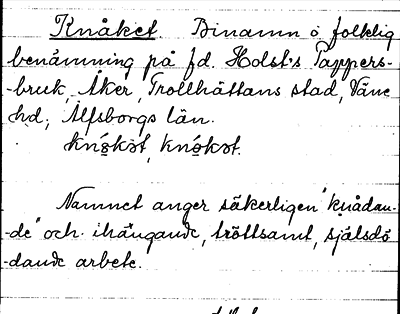 Knåket. Binamn o. folklig
benämning på f.d. Holst's Pappers-
-bruk, Åker, Trollhättans stad, Väne
hd; Älfsborgs län.
Namnet anger säkerligen "knådan-
-de" och ihängande, tröttsamt, själsdö
-dande arbete.